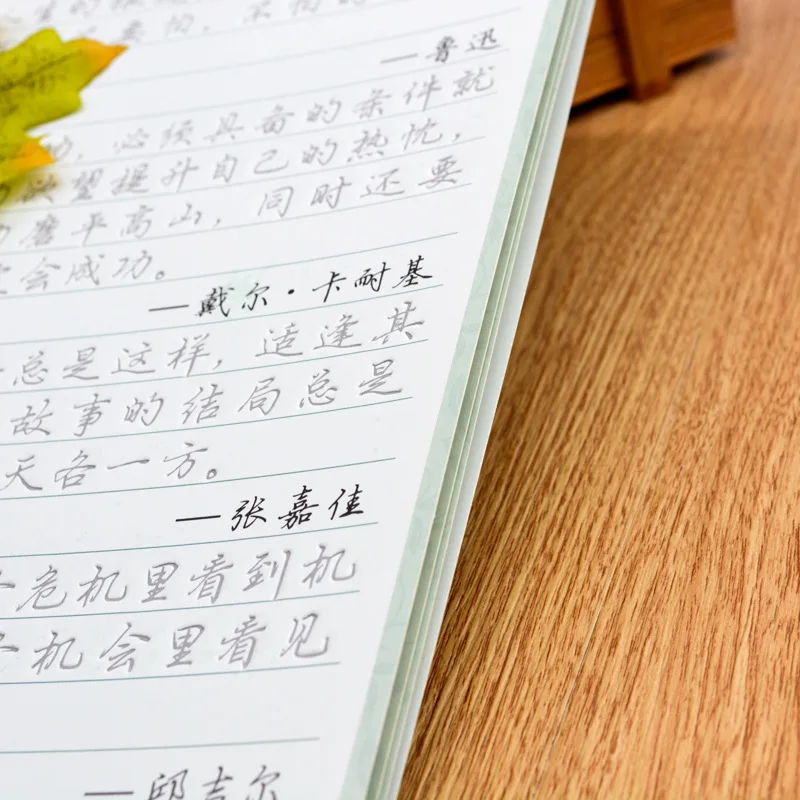 —鲁迅
必须具备的条件就
欲望提升自己的热忱,
磨平高山,同时还要
会成功。
—戴尔·卡耐基
总是这样,适逢其
故事的结局总是
天各一方。
—张嘉佳
危机里看到机
机会里看见
—邱吉尔